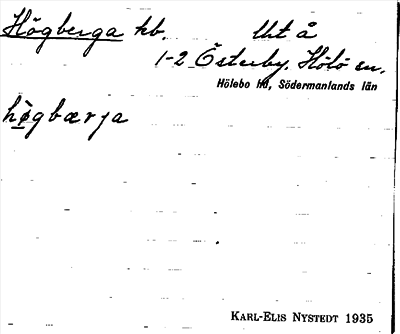 Högberga hb. Ut å
1-2 Österby, Hölö sn.
Hölebo hd, Södermanlands län
hògbærja
KARL-ELIS NYSTEDT 1935